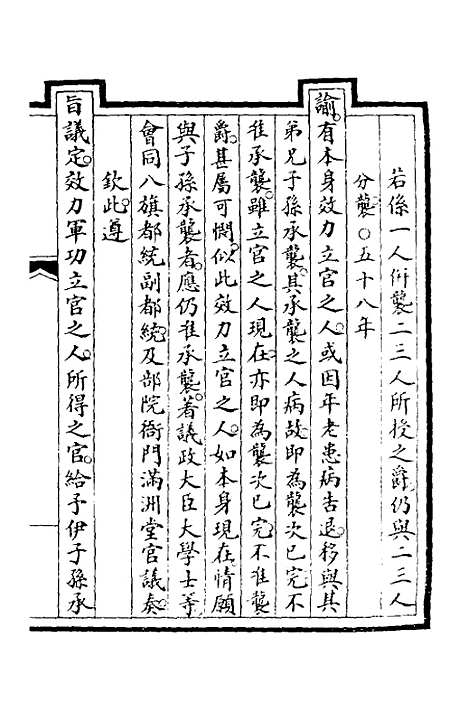 若係一人併襲二三人所授之爵仍與二三人
分襲○五十八年
諭有本身效力立官之人或因年老患病告退移與其
弟兄子孫承襲其承襲之人病故即為襲次已完不
准承襲雖立官之人現在亦即為襲次已完不准襲
爵甚屬可憫似此效力立官之人如本身現在情願
與子孫承襲者應仍准承襲著議政大臣大學士等
會同八旗都統副都統及部院衙門滿洲堂官議奏
欽此遵
旨議定效力軍功立官之人所得之官給予伊子孫承